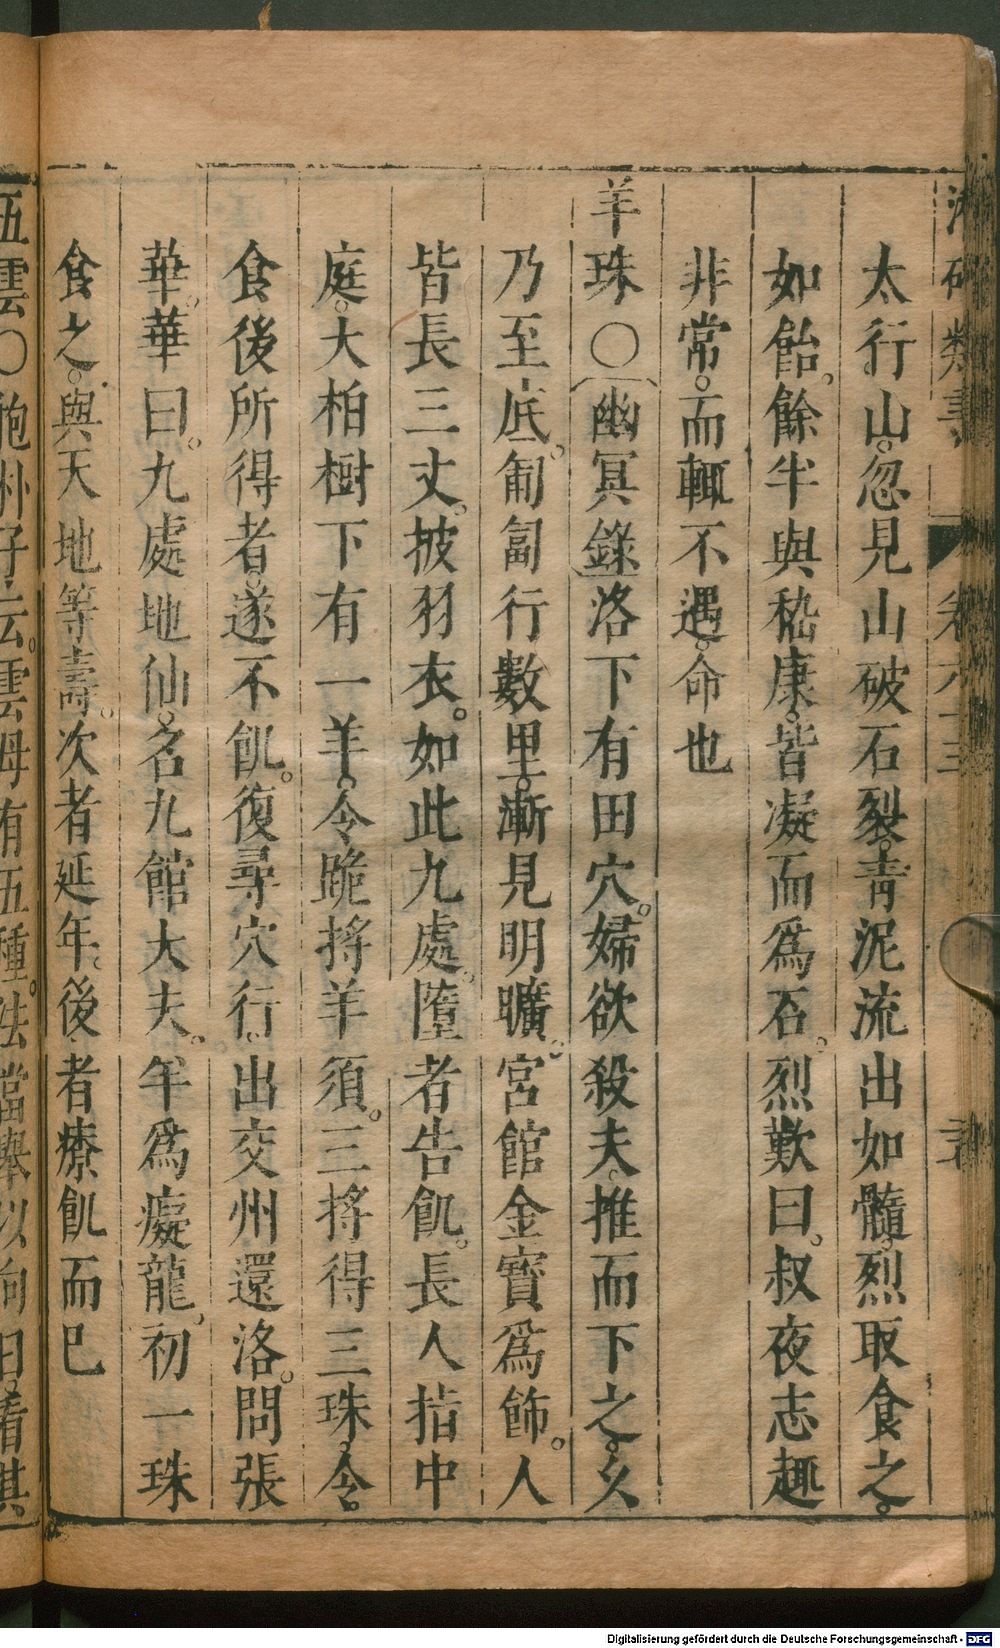 類書 卷六三
太行山。忽見山破石裂。青泥流出如髓。烈取食之。
如飴。餘半與嵇康。皆凝而為石。烈歎曰。叔夜志趣
非常。而輒不遇。命也
羊珠〇〔幽冥錄〕洛下有田穴。婦欲殺夫。推而下之。久
乃至底。匍匐行數里。漸見明曠。宮館金寶為飾。人
皆長三丈。披羽衣。如此九處。墮者告飢。長人指中
庭。大柏樹下有一羊。令跪捋羊須。三捋得三珠。令
食後所得者。遂不飢。復尋穴行。出交州還洛。問張
華。華曰。九處地仙。名九館大夫。羊為癡龍。初一珠
食之。與天地等壽。次者延年。後者療飢而已
五雲〇抱朴子云。雲母有五種。法當舉以向日。看其
Digitalisierung gefördert durch die Deutsche Forschungsgemeinschaft - DFG